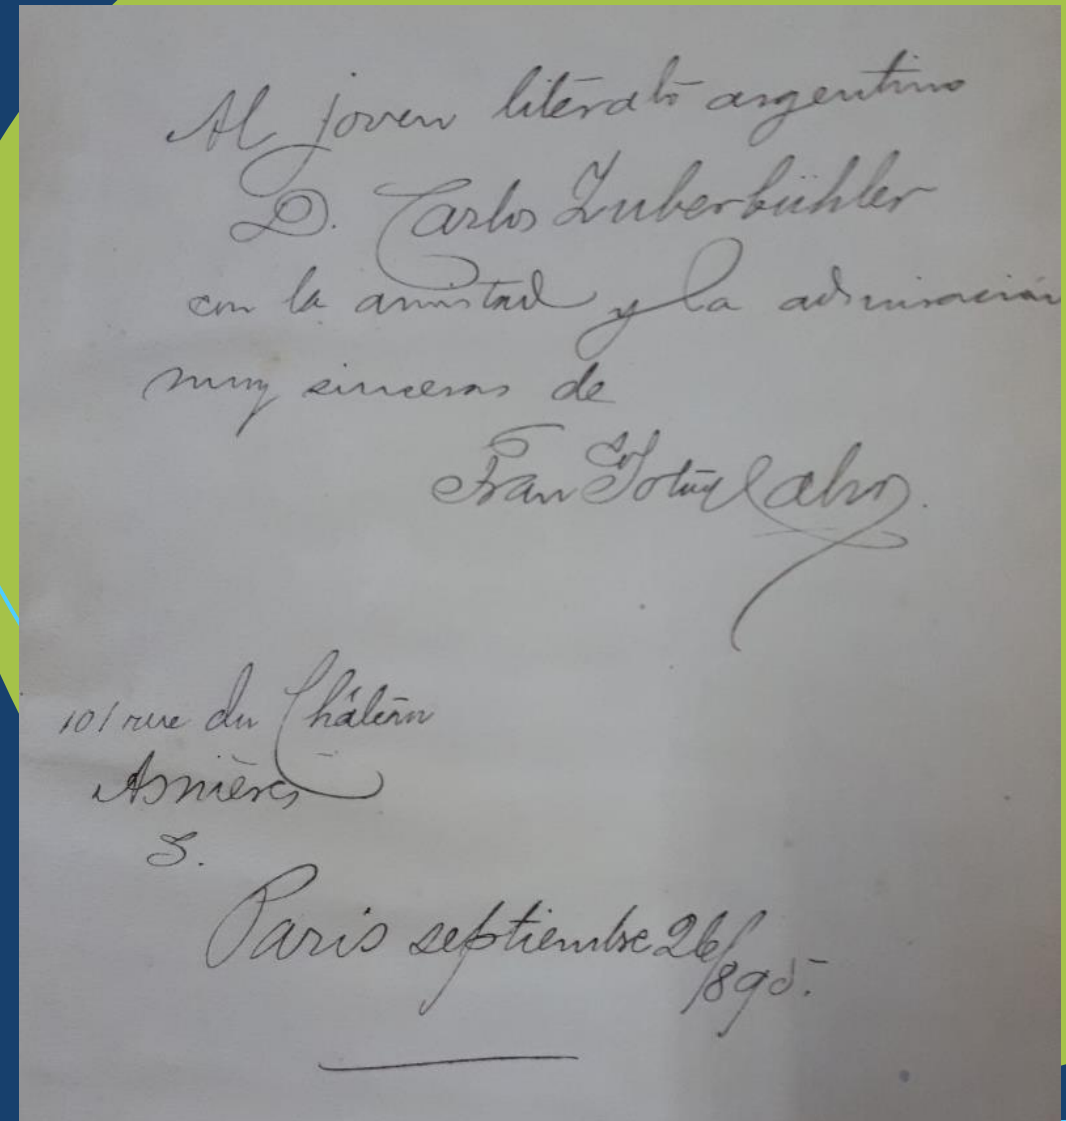 Al joven literato argentino
D. Carlos Zuberbühler
con la amistad y la admiración
muy sinceras de
Fran Sotuy Calvo.
101 rue du Château
Asnières
S.
Paris septiembre 26/895.